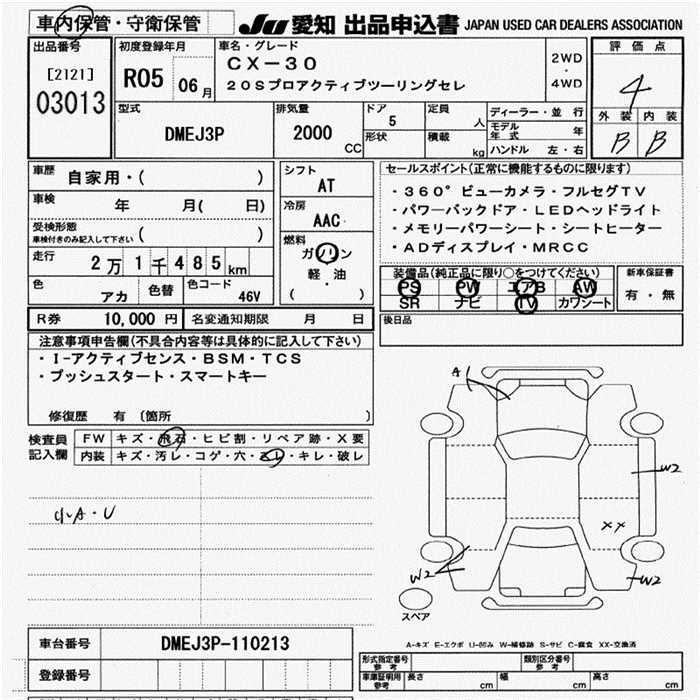 車内保管・守衛保管 JU 愛知 出品申込書 JAPAN USED CAR DEALERS ASSOCIATION
出品番号
[2121]
03013
初度登録年月
R05 06月
車名・グレード
CX-30
20Sプロアクティブツーリングセレ
2WD
・
4WD
評価点
4
外装 内装
B B
型式
DMEJ3P
排気量
2000 CC
ドア
5
形状
定員
人
積載
kg
ディーラー・並行
モデル年式 年
ハンドル 左・右
車歴 自家用・( )
車検 年 月( 日)
受検形態
車検付きのみ記入して下さい ( )
走行 2万1千485km
色 アカ 色替 色コード 46V
シフト
AT
冷房
AAC
燃料
ガソリン
軽・油
( )
R券 10,000 円 名変通知期限 月 日
セールスポイント(正常に機能するものに限ります)
・360°ビューカメラ・フルセグTV
・パワーバックドア・LEDヘッドライト
・メモリーパワーシート・シートヒーター
・ADディスプレイ・MRCC
装備品(純正品に限り○をつけてください)
PS PW エアB AW
SR ナビ TV カワシート
新車保証書
有・無
後日品
注意事項申告欄(不具合内容等は具体的に記入して下さい)
・I-アクティブセンス・BSM・TCS
・プッシュスタート・スマートキー
修復歴 有 (箇所 )
検査員記入欄
FW キズ・飛石・ヒビ割・リペア跡・X要
内装 キズ・汚レ・コゲ・穴・スレ・キレ・破レ
小A・U
A
W2
XX
W2
W2
スペア
A-キズ E-エクボ U-凹み W-補修跡 S-サビ C-腐食 XX-交換済
車台番号 DMEJ3P-110213
登録番号
形式指定番号 参考
類別区分番号 参考
車庫証明用 参考 長さ cm 幅 cm 高さ cm